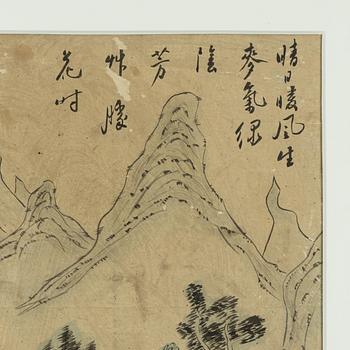 晴日暖風生
麥氣綠
陰
芳
艸勝
花时